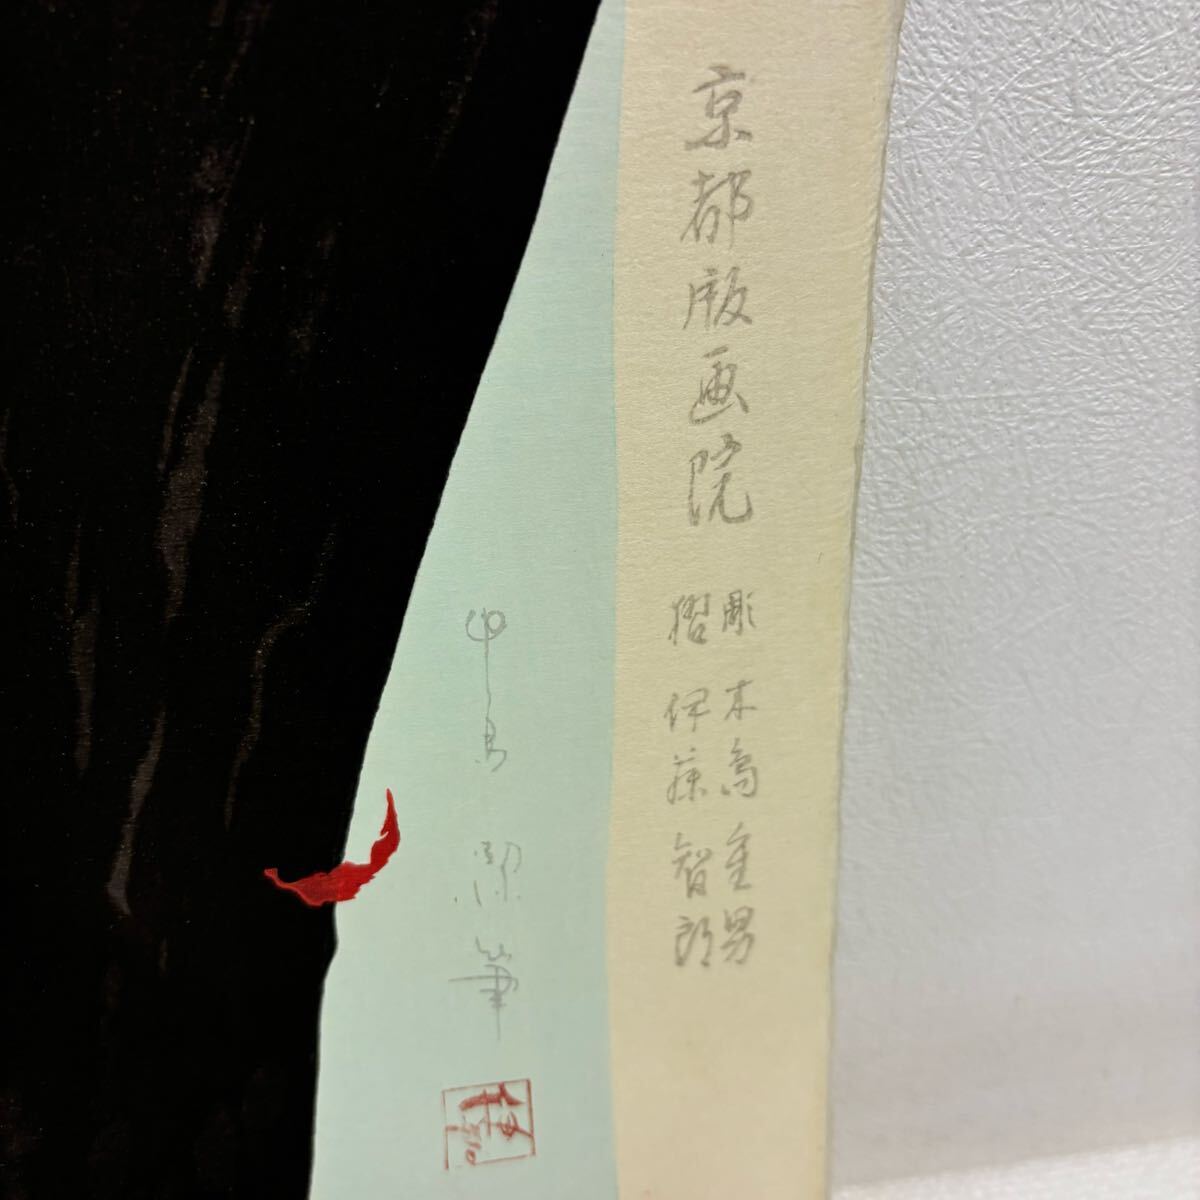 京都版画院
彫 木高重男
摺 伊藤智郎
中島潔筆